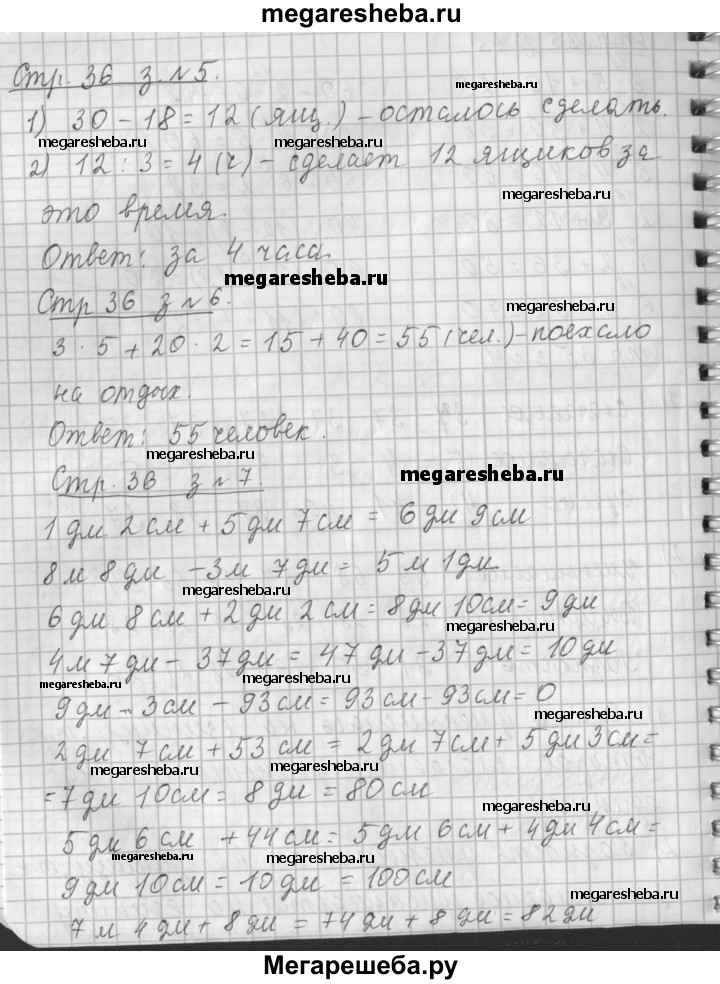 megaresheba.ru
Стр. 36 з. №5.
megaresheba.ru
1) 30 - 18 = 12 (ящ.) - осталось сделать.
megaresheba.ru
2) 12 : 3 = 4 (ч) - сделает 12 ящиков за
megaresheba.ru
это время.
Ответ: за 4 часа.
megaresheba.ru
Стр 36 з №6.
megaresheba.ru
3 · 5 + 20 · 2 = 15 + 40 = 55 (чел.) - поехало
на отдых.
Ответ: 55 человек.
megaresheba.ru
Стр. 36 з №7.
megaresheba.ru
1 дм 2 см + 5 дм 7 см = 6 дм 9 см
8 м 8 дм - 3 м 7 дм = 5 м 1 дм.
megaresheba.ru
6 дм 8 см + 2 дм 2 см = 8 дм 10 см = 9 дм
megaresheba.ru
4 м 7 дм - 37 дм = 47 дм - 37 дм = 10 дм
megaresheba.ru
megaresheba.ru
9 дм - 3 см - 93 см = 93 см - 93 см = 0
megaresheba.ru
2 дм 7 см + 53 см = 2 дм 7 см + 5 дм 3 см =
megaresheba.ru
megaresheba.ru
= 7 дм 10 см = 8 дм = 80 см
megaresheba.ru
5 дм 6 см + 44 см = 5 дм 6 см + 4 дм 4 см =
megaresheba.ru
megaresheba.ru
megaresheba.ru
9 дм 10 см = 10 дм = 100 см
megaresheba.ru
7 м 4 дм + 8 дм = 74 дм + 8 дм = 82 дм
Мегарешеба.ру